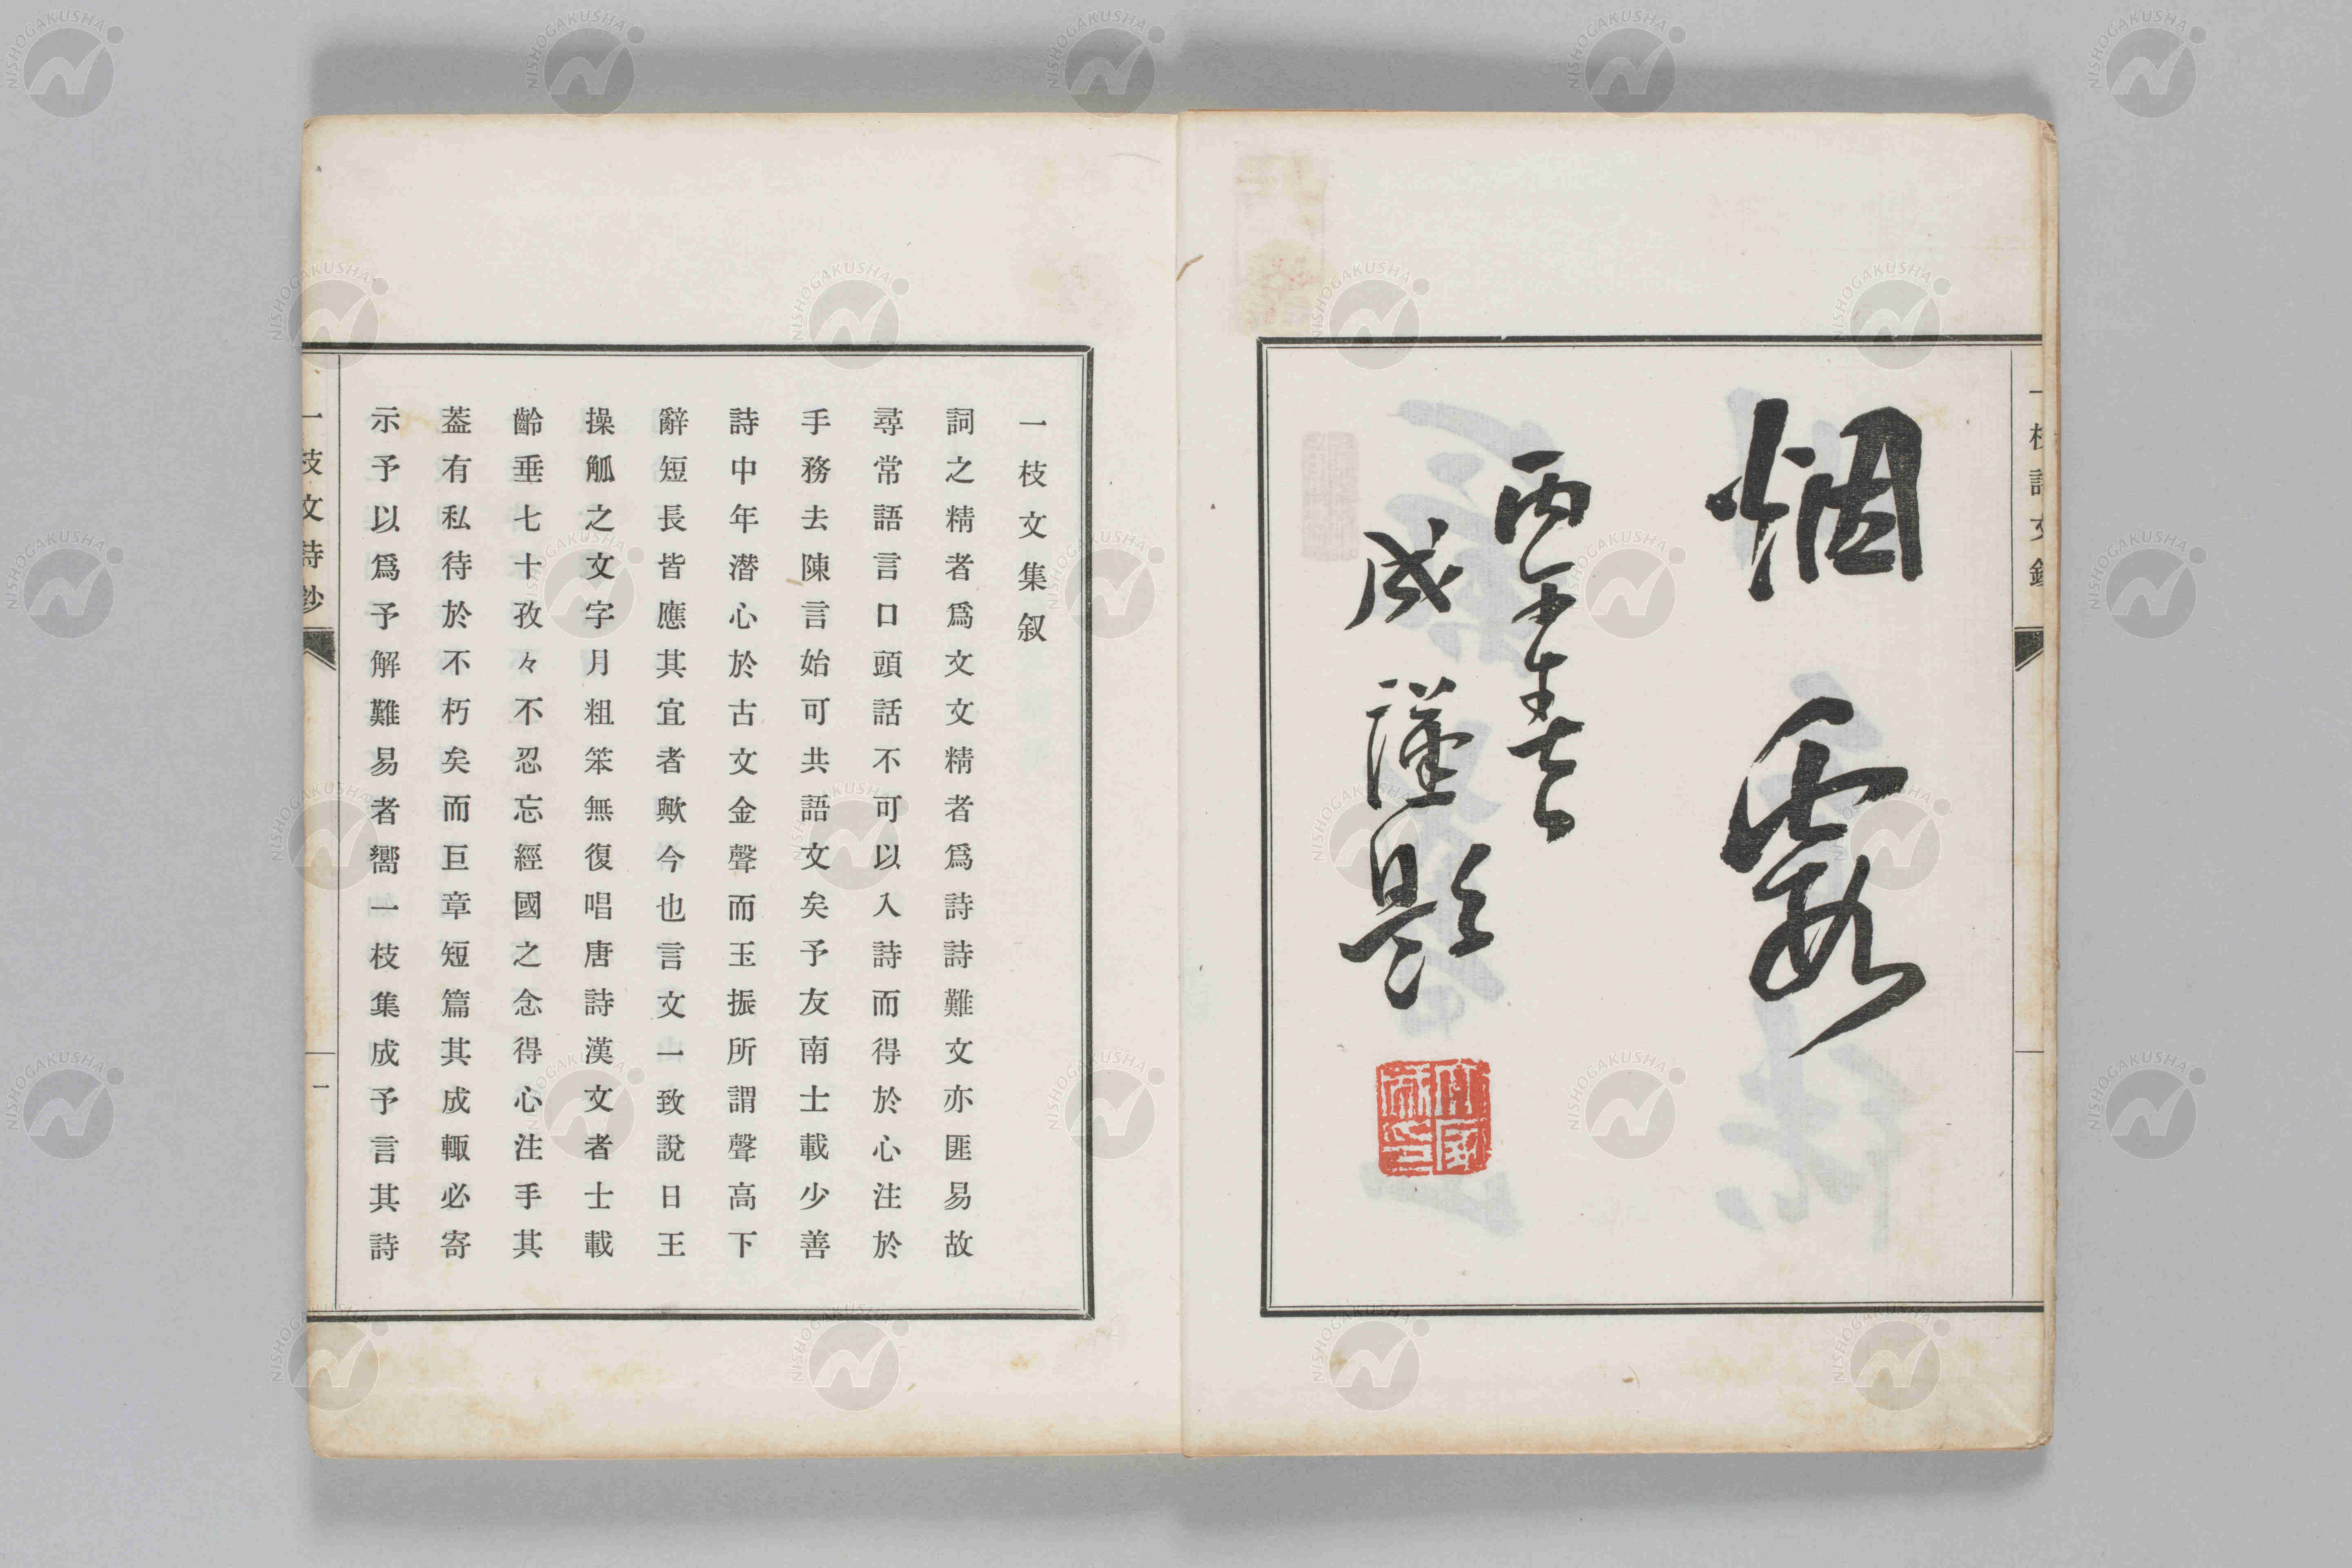 烟霞
丙子春
成謹題
一枝文集叙
詞之精者爲文文精者爲詩詩難文亦匪易故
尋常語言口頭話不可以入詩而得於心注於
手務去陳言始可共語文矣予友南士載少善
詩中年潜心於古文金聲而玉振所謂聲高下
辭短長皆應其宜者歟今也言文一致說日王
操觚之文字月粗笨無復唱唐詩漢文者士載
齡垂七十孜々不忍忘經國之念得心注手其
葢有私待於不朽矣而巨章短篇其成輙必寄
示予以爲予解難易者嚮一枝集成予言其詩
一枝文詩鈔
一
NISHOGAKUSHA